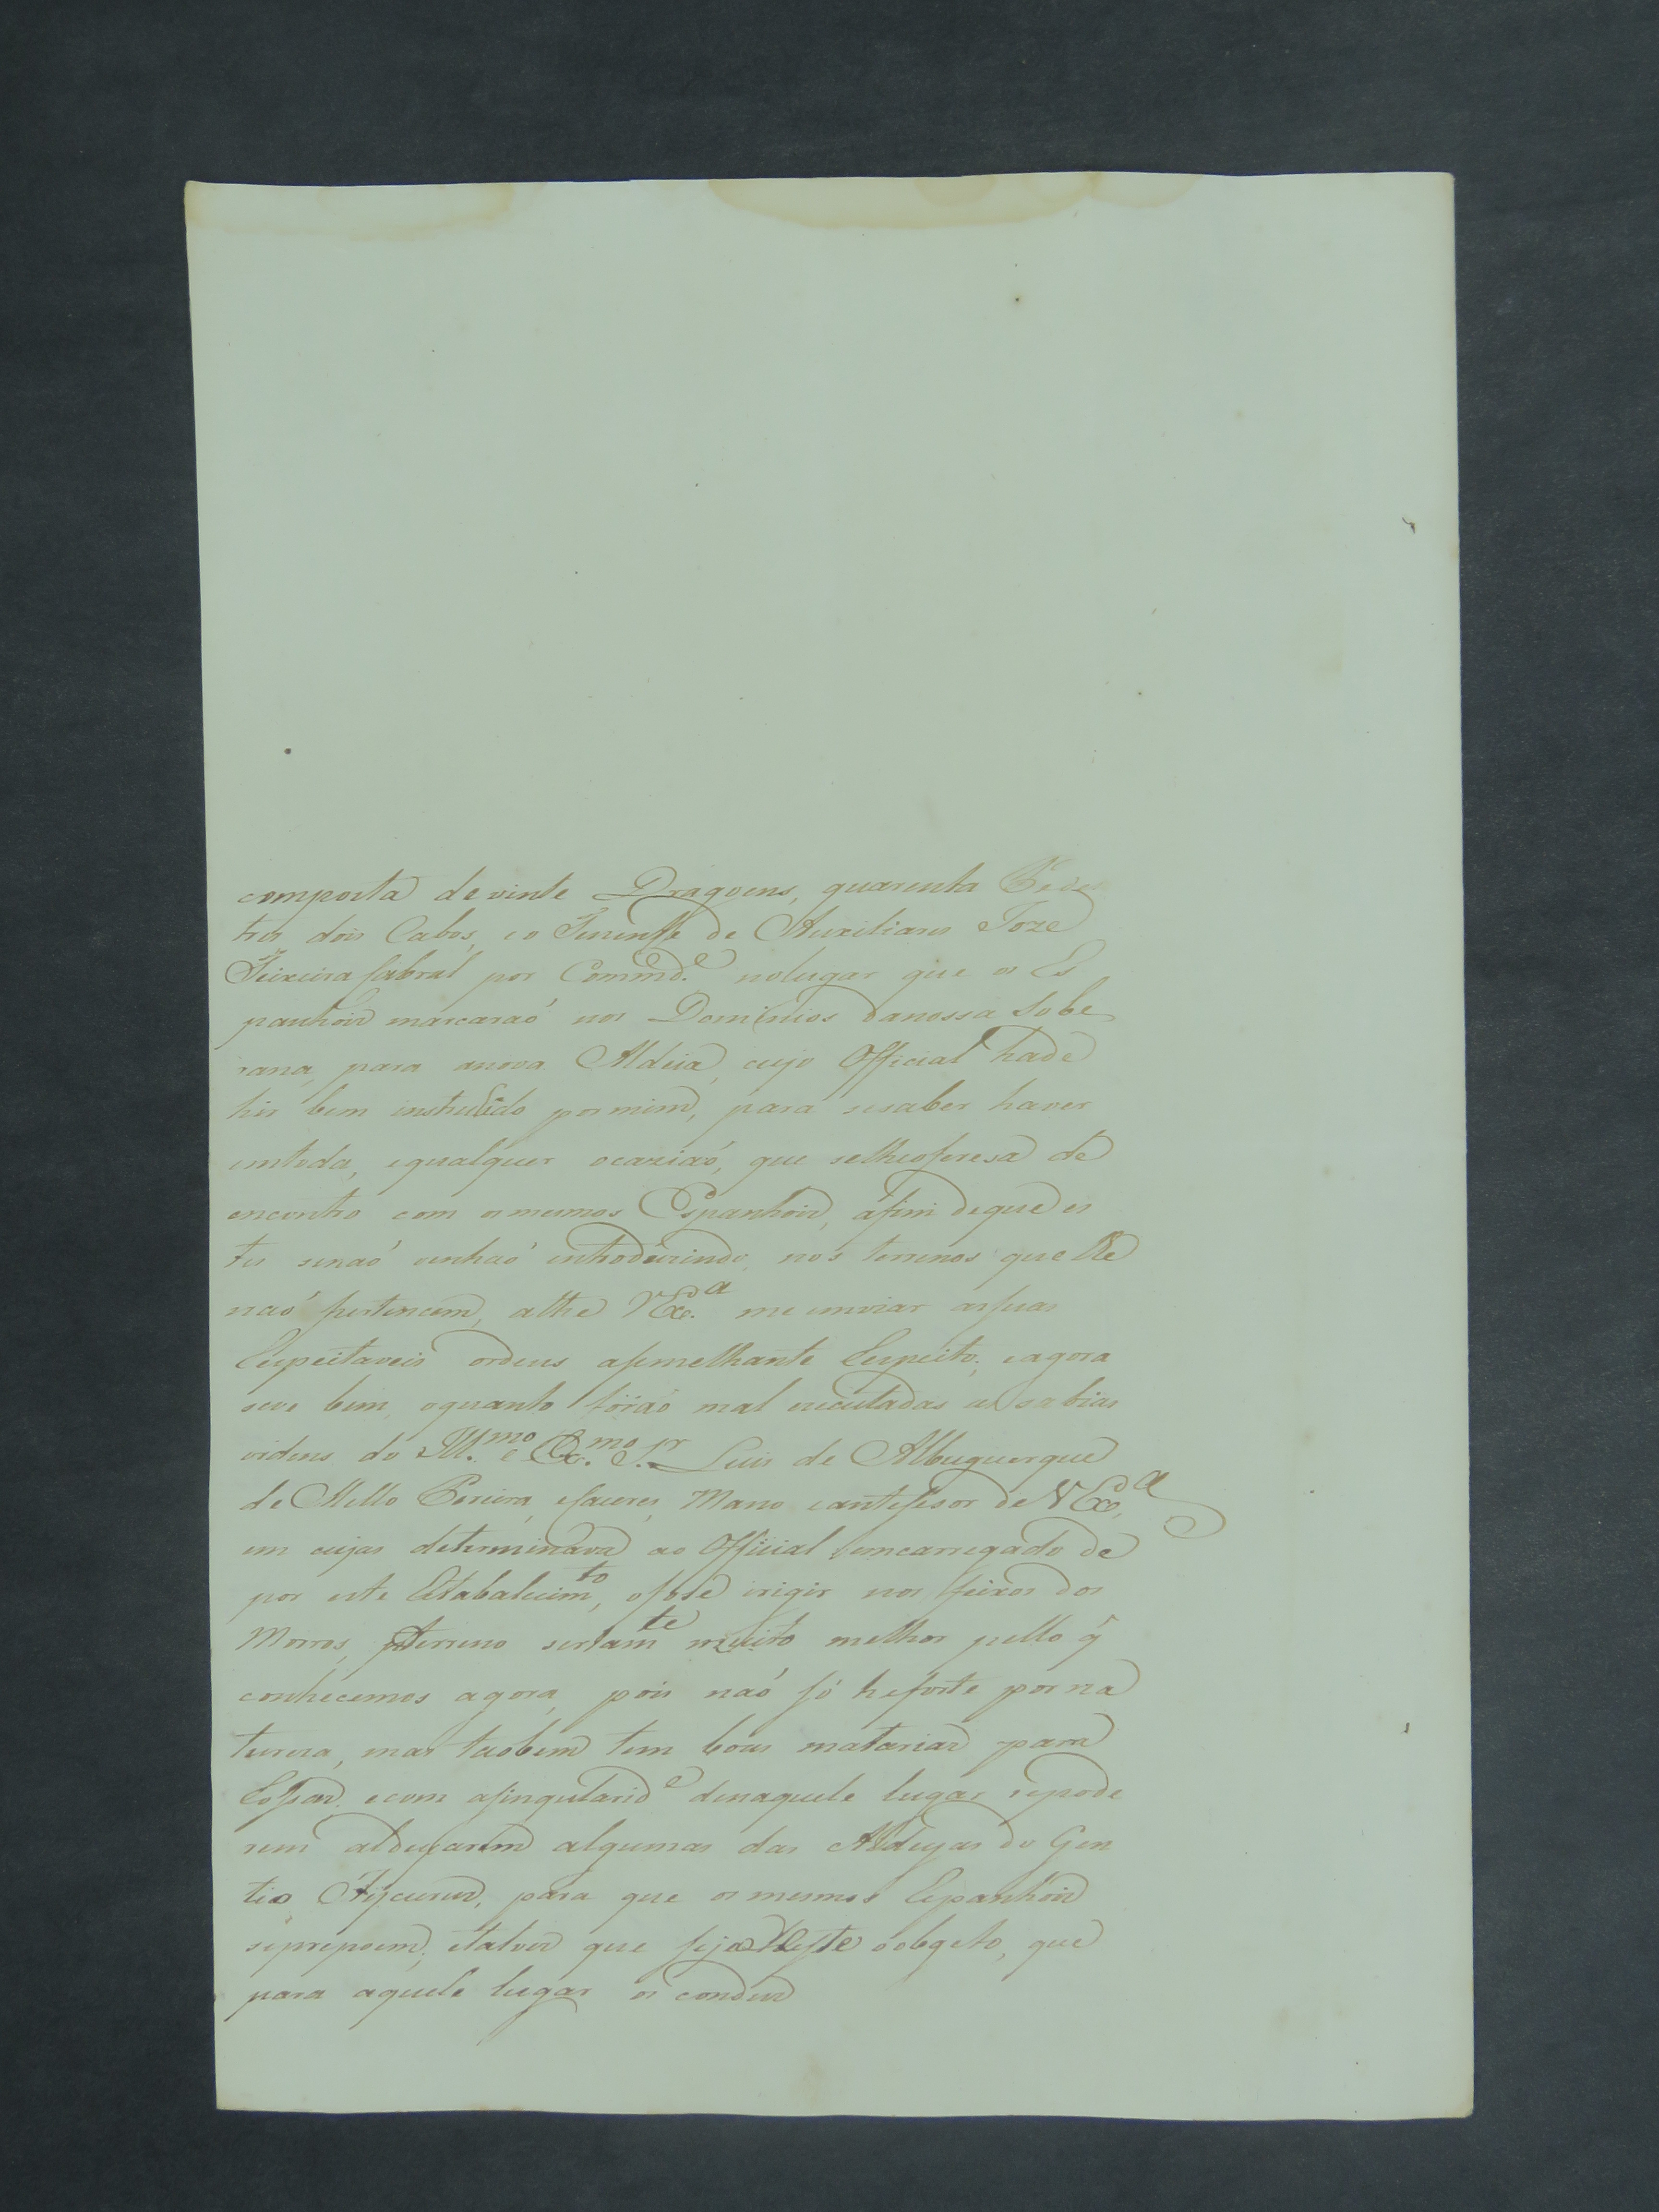 composta de vinte Dragoens, quarenta Pedes
tres dois Cabos, e o Tenente de Auxiliares Joze
Teixeira Cabral por Commd.e no lugar que os Es
panhois marcaraó nos Dominios danossa Sobe
rana, para anova Aldeia, cujo Official hade
hir bem instruido por mim, para sesaber haver
emtoda, equalquer ocaziaó, que selheofereça de
encontro com os mesmos Espanhois, afim deque es
tes senaó venhaó introduzindo, nos terrenos que lhe
naó pertencem, athe VEx.a me inviar as suas
Respeitaveis ordens asemelhante Respeito; e agora
seve bem, oquanto foraó mal executadas as sabias
ordens do Ill.mo e Ex.mo S.r Luis de Albuquerque
de Mello Pereira, e Caceres, Mano e antesesor de VEx.a
em cujas determinava ao Official emcarregado de
por este Estabalecim.to, ofose erigir nos feixos dos
Morros, terreno sertam.te muito melhor pello q̃
conhecemos agora, pois naó só heforte por na
tureza, mas taobem tem bons matarias para
Rossar, ecom asingularid.e denaquele lugar sepode
rem aldeyarem algumas das Aldeyas do Gen
tio Aycurus, para que os mesmos Espanhois
sepropoem; etalves que seja este oobgeto, que
para aquele lugar os conduz